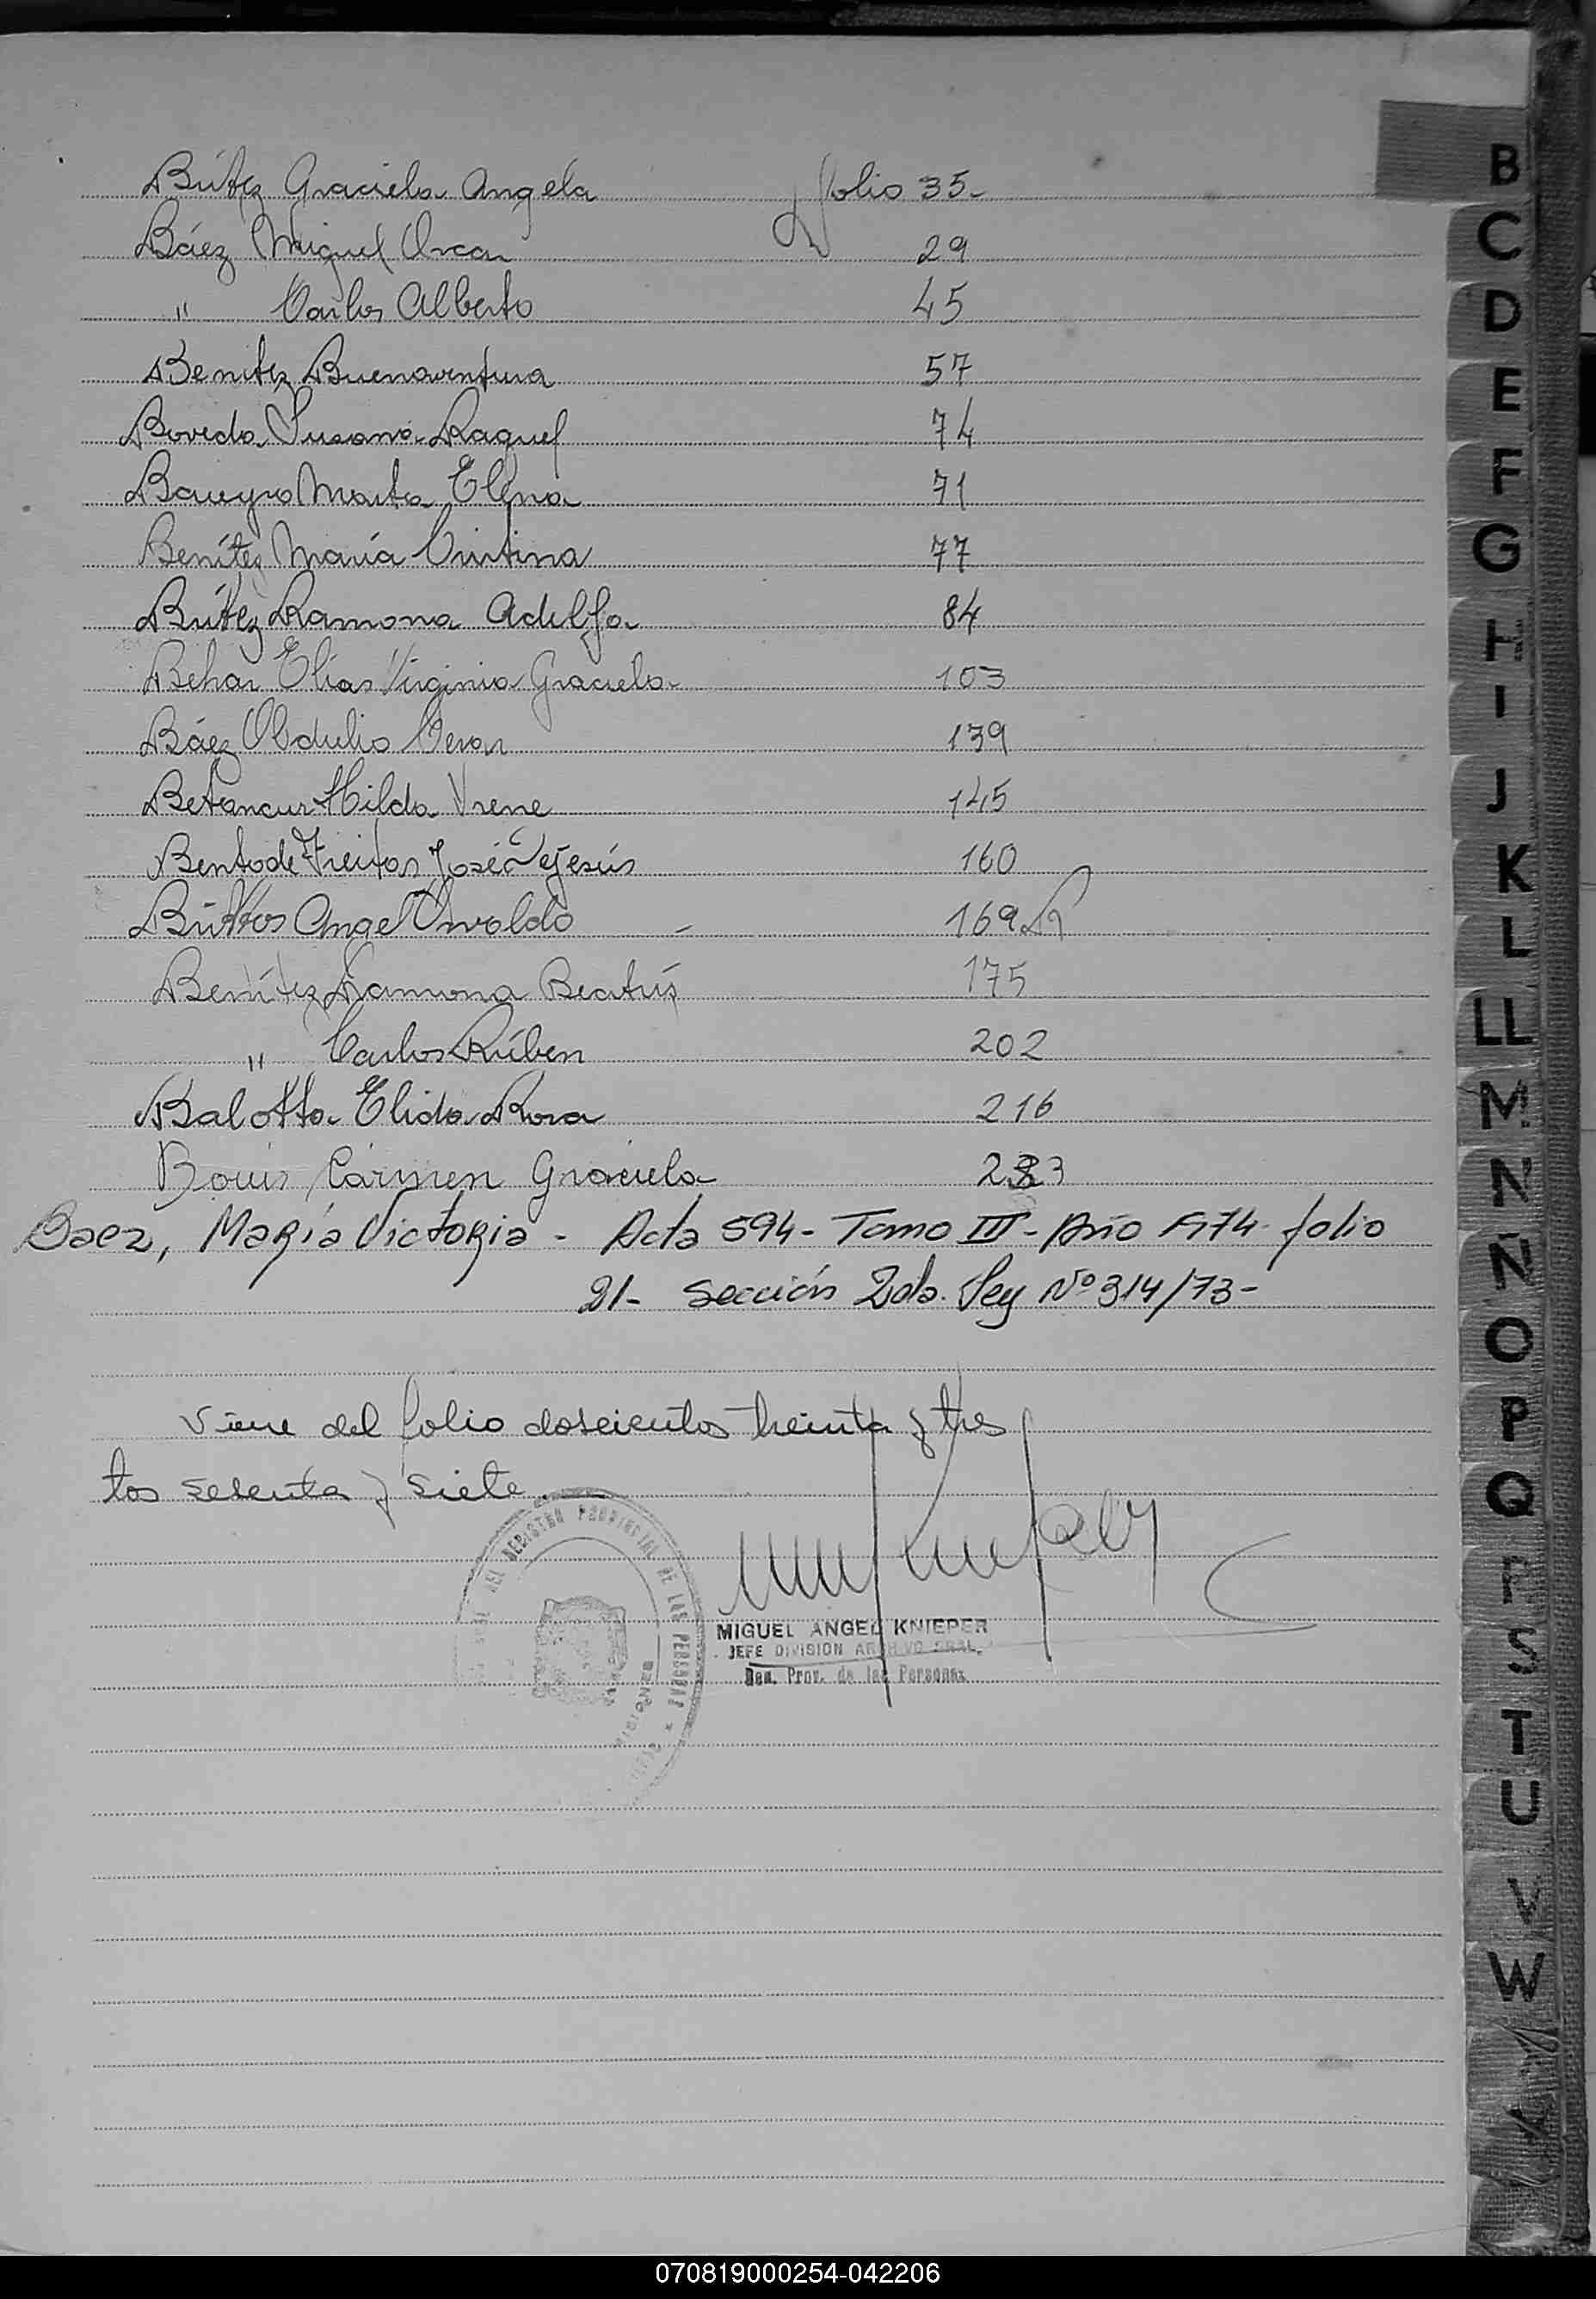 Brítez Graciela Angela folio 35-
Báez Miguel Oscar 29
" Carlos Alberto 45
Benitez Buenaventura 57
Boveda Susana Raquel 74
Bareyro Marta Elena 71
Benítez María Cristina 77
Brítez Ramona Adelfa 84
Behar Elías Virginia Graciela 103
Báez Obdulio Cesar 139
Betancur Hilda Irene 145
Bento de Freitas José De Jesús 160
Angel Osvaldo - 169
Benítez Ramona Beatrís 175
" Carlos Rúben 202
Balotta Elida Rosa 216
Carmen Graciela 233
Baez, María Victoria - Acta 594- Tomo III - Año 1974- folio
21- Sección 2da. Ley Nº 314/73-
Viene del folio doscientos treinta y tres
tos sesenta y siete
DEL REGISTRO PROVINCIAL DE LAS PERSONAS
MISIONES
MIGUEL ANGEL KNIEPER
JEFE DIVISION ARCHIVO GRAL.
Reg. Prov. de las Personas
B
C
D
E
F
G
H
I
J
K
L
LL
M
N
Ñ
O
P
Q
R
S
T
U
V
W
070819000254-042206